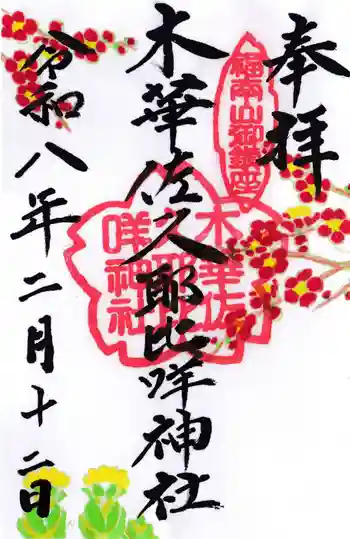 奉拝
木華佐久耶比咩神社
令和八年二月十二日
木華佐
久耶比
咩神社